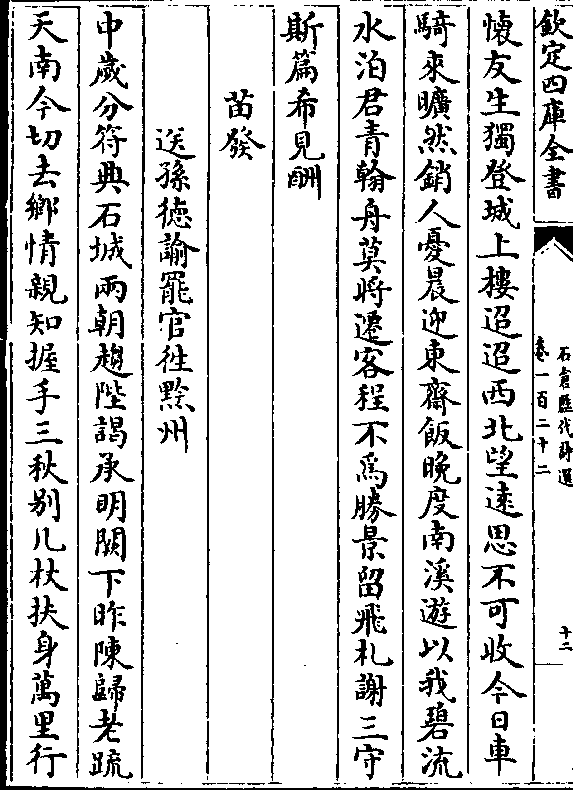 欽定四庫全書
石倉歷代詩選
卷一百二十二
十二
懐友生獨登城上樓迢迢西北望逺思不可收今日車
騎來曠然銷人憂晨迎東齋飯晚度南溪遊以我碧流
水泊君青翰舟莫將遷客程不爲勝景留飛札謝三守
斯篇希見酬
苗發
送孫徳諭罷官徃黔州
中歲分符典石城兩朝趨陛謁承明闕下昨陳歸老疏
天南今切去鄉情親知握手三秋别几杖扶身萬里行